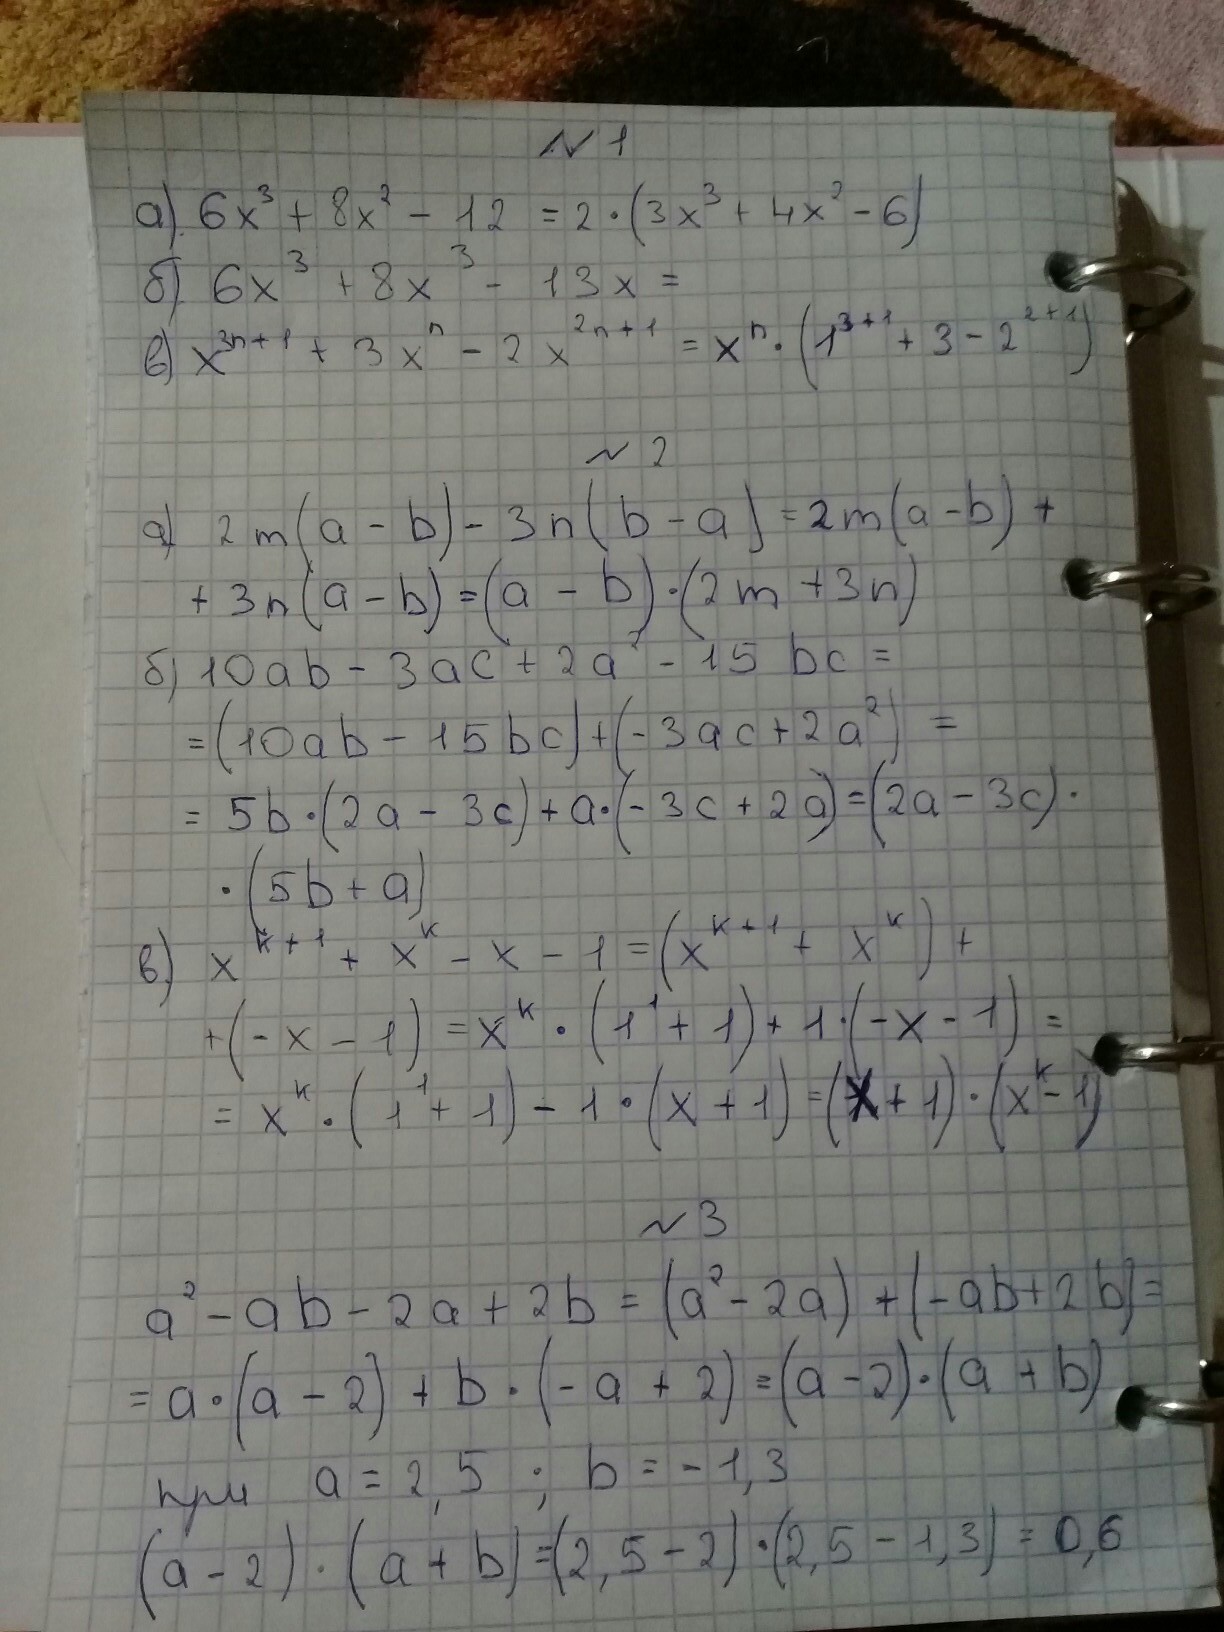 № 1
а) 6x³ + 8x² - 12 = 2 · (3x³ + 4x² - 6)
б) 6x³ + 8x³ - 13x =
в) x³ⁿ⁺¹ + 3xⁿ - 2x²ⁿ⁺¹ = xⁿ · (1³⁺¹ + 3 - 2²⁺¹)
№ 2
а) 2m(a - b) - 3n(b - a) = 2m(a - b) +
+ 3n(a - b) = (a - b) · (2m + 3n)
б) 10ab - 3ac + 2a² - 15bc =
= (10ab - 15bc) + (-3ac + 2a²) =
= 5b · (2a - 3c) + a · (-3c + 2a) = (2a - 3c) ·
· (5b + a)
в) xᵏ⁺¹ + xᵏ - x - 1 = (xᵏ⁺¹ + xᵏ) +
+ (-x - 1) = xᵏ · (1¹ + 1) + 1 · (-x - 1) =
= xᵏ · (1¹ + 1) - 1 · (x + 1) = (x + 1) · (xᵏ - 1)
№ 3
a² - ab - 2a + 2b = (a² - 2a) + (-ab + 2b) =
= a · (a - 2) + b · (-a + 2) = (a - 2) · (a + b)
при a = 2,5 ; b = -1,3
(a - 2) · (a + b) = (2,5 - 2) · (2,5 - 1,3) = 0,6